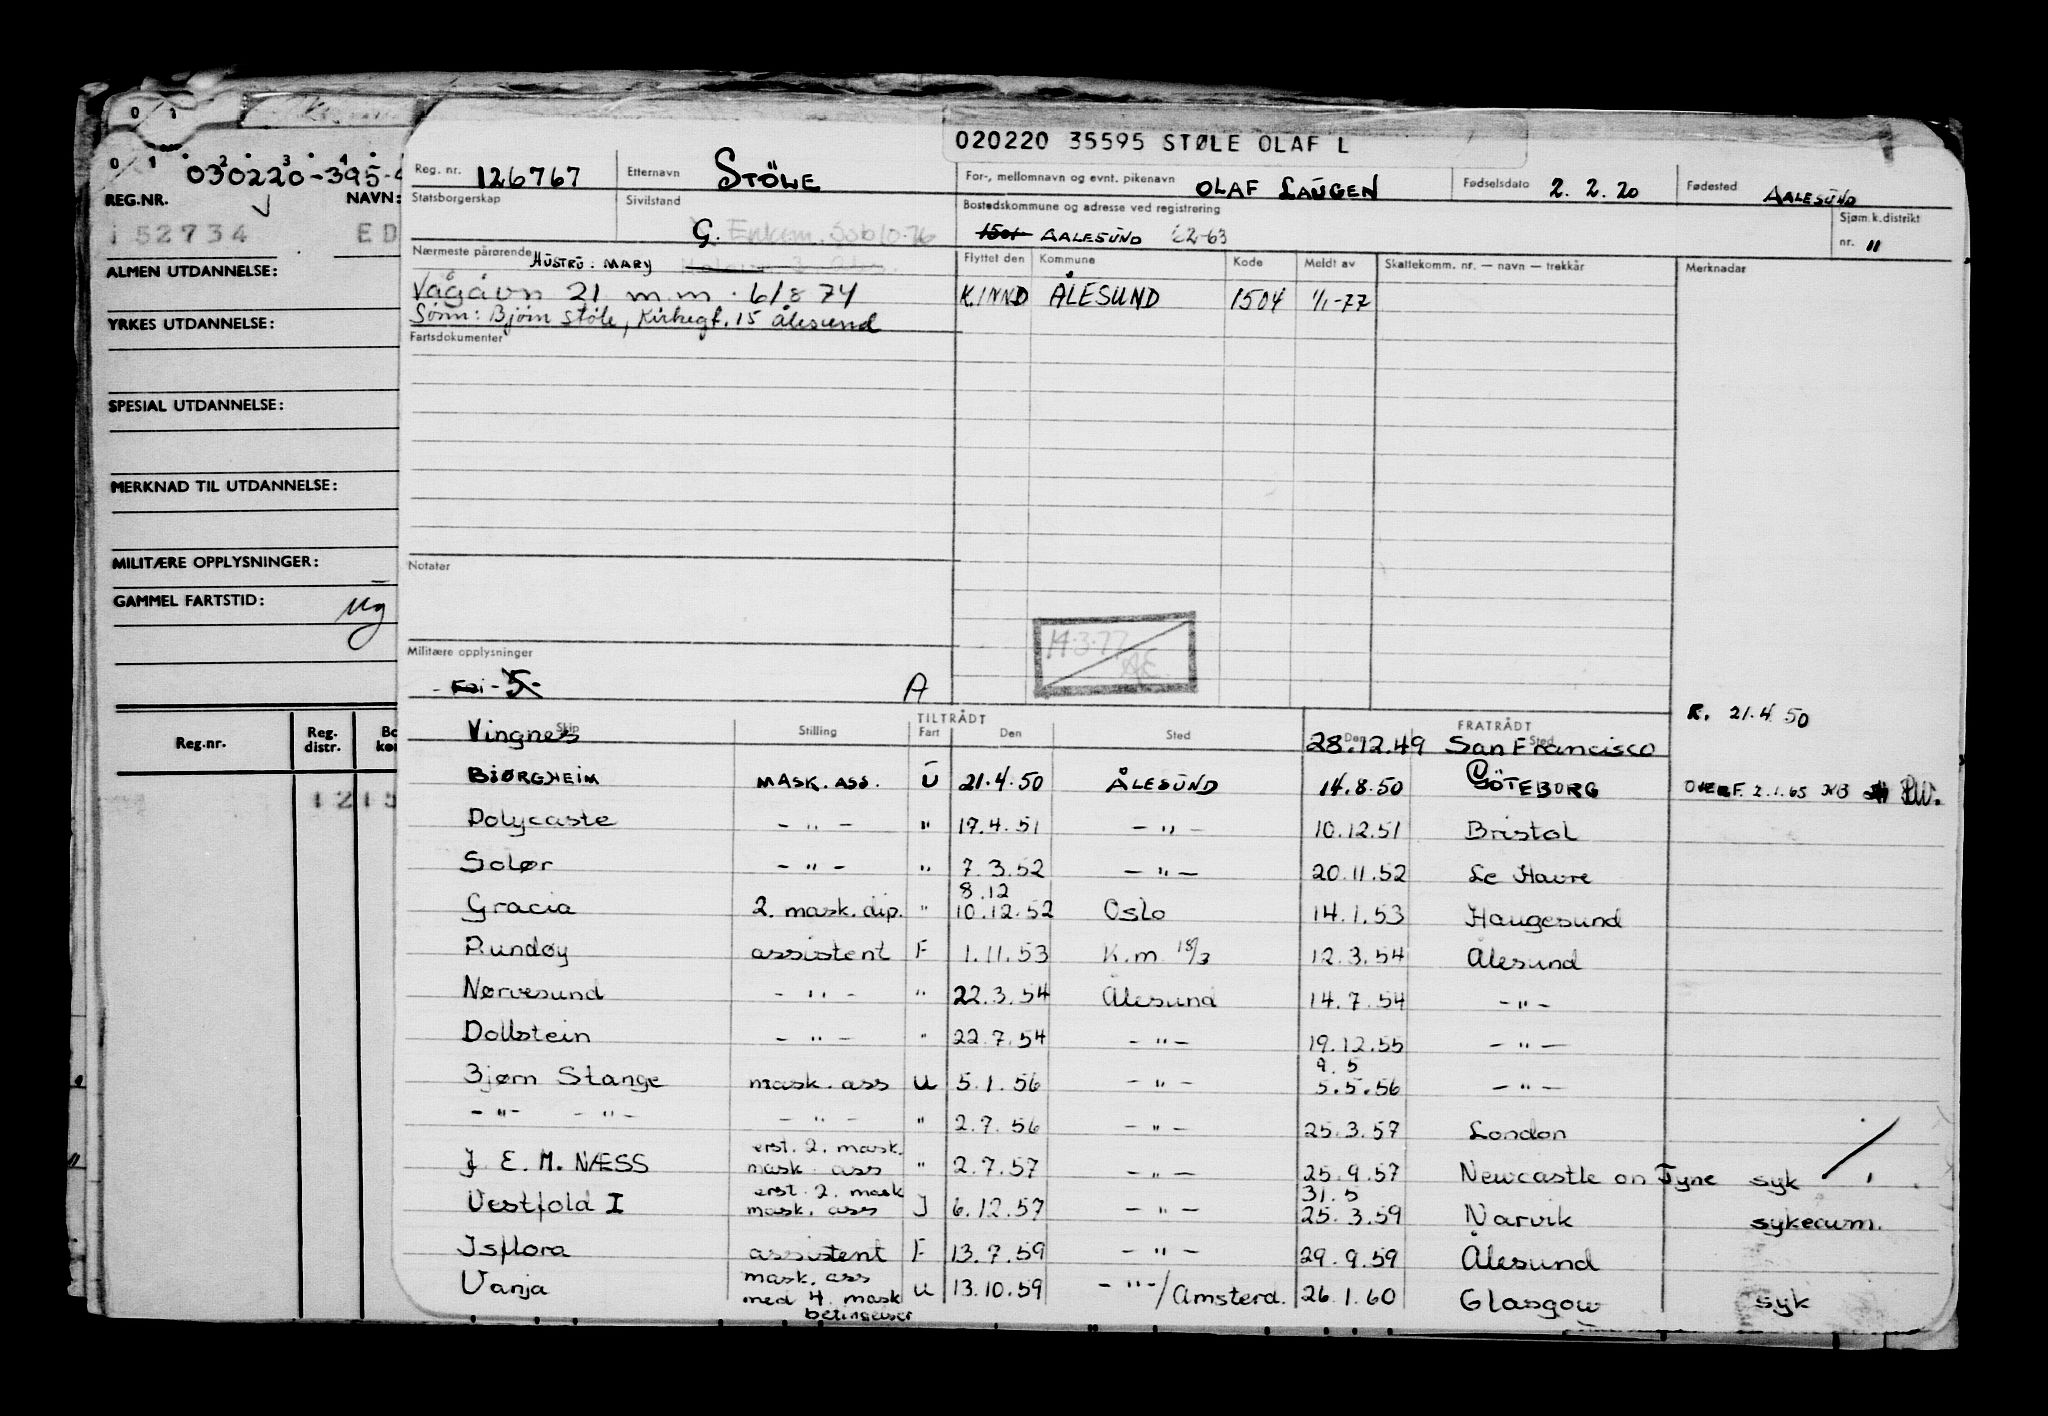 020220 35595 STØLE OLAF L
030220-395-4
REG.NR. NAVN:
152734 ED
ALMEN UTDANNELSE:
YRKES UTDANNELSE:
SPESIAL UTDANNELSE:
MERKNAD TIL UTDANNELSE:
MILITÆRE OPPLYSNINGER:
GAMMEL FARTSTID: Ug
Reg.nr. Reg. distr.
1215
Reg. nr. 126767 Etternavn STÖLE For-, mellomnavn og evnt. pikenavn OLAF LAUGEN Fødselsdato 2.2.20 Fødested AALESUND
Statsborgerskap Sivilstand G. Enkem. Bostedskommune og adresse ved registrering 1501 AALESUND 62-63 Sjøm.k.distrikt nr. "
Nærmeste pårørende HUSTRU: MARY Flyttet den Kommune Kode Meldt av Skattekomm. nr. — navn — trekkår Merknadar
Vågåvn 21 m.m. 6/8 74 KINND ÅLESUND 1504 1/1-77
Sønn: Bjørn Støle, Kirkegt. 15 Ålesund
Fartsdokumenter
Notater
14.3.77 AE.
Militære opplysninger
- Fri - 5 - A
R. 21.4.50
TILTRÅDT FRATRÅDT
Skip Stilling Fart Den Sted Den Sted
Vingnes 28.12.49 San Francisco
BJØRGHEIM MASK. ASS. U 21.4.50 ÅLESUND 14.8.50 GÖTEBORG OVERF. 2.1.65
Polycaste - " - " 17.4.51 - " - 10.12.51 Bristol
Solør - " - " 7.3.52 - " - 20.11.52 Le Havre
8.12
Gracia 2. mask. dip. " 10.12.52 Oslo 14.1.53 Haugesund
Rundøy assistent F 1.11.53 K.m. 18/3 12.3.54 Ålesund
Nørvesund - " - " 22.3.54 Ålesund 14.7.54 - " -
Dollstein - " - " 22.7.54 - " - 19.12.55 - " -
9.5
Bjørn Stange mask. ass U 5.1.56 - " - 5.5.56 - " -
- " - - " - - " - " 2.7.56 - " - 25.3.57 London
erst. 2. mask.
J. E. M. NÆSS mask. ass " 2.7.57 - " - 25.9.57 Newcastle on Tyne syk
erst. 2. mask 31.5
Vestfold I mask. ass J 6.12.57 - " - 25.3.59 Narvik sykeaum.
Isflora assistent F 13.7.59 - " - 29.9.59 Ålesund
mask. ass
Vanja med 4. mask U 13.10.59 - " - / Amsterd. 26.1.60 Glasgow syk
betingelser